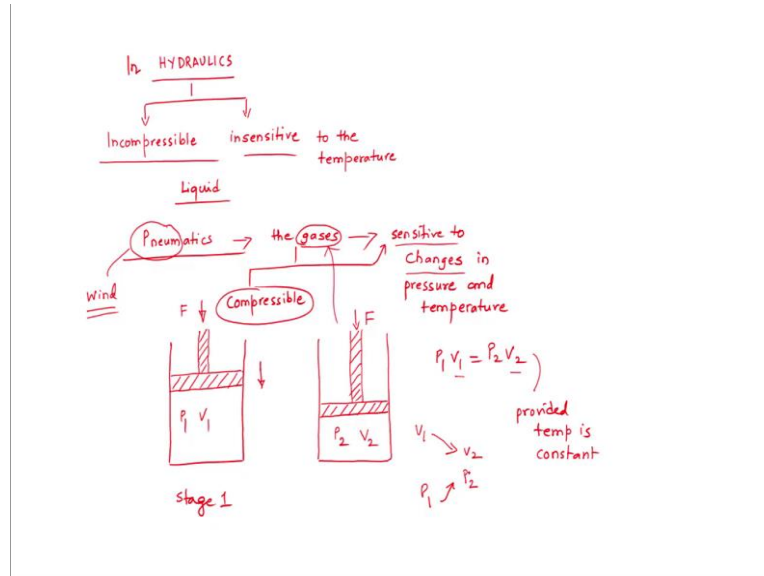 In HYDRAULICS
Incompressible insensitive to the
temperature
Liquid
Pneumatics → the gases → sensitive to
changes in
pressure and
temperature
Wind
Compressible
F F
P₁ V₁ = P₂ V₂
provided
temp is
constant
P₁ V₁
P₂ V₂
V₁ → V₂
P₁ ↗ P₂
Stage 1